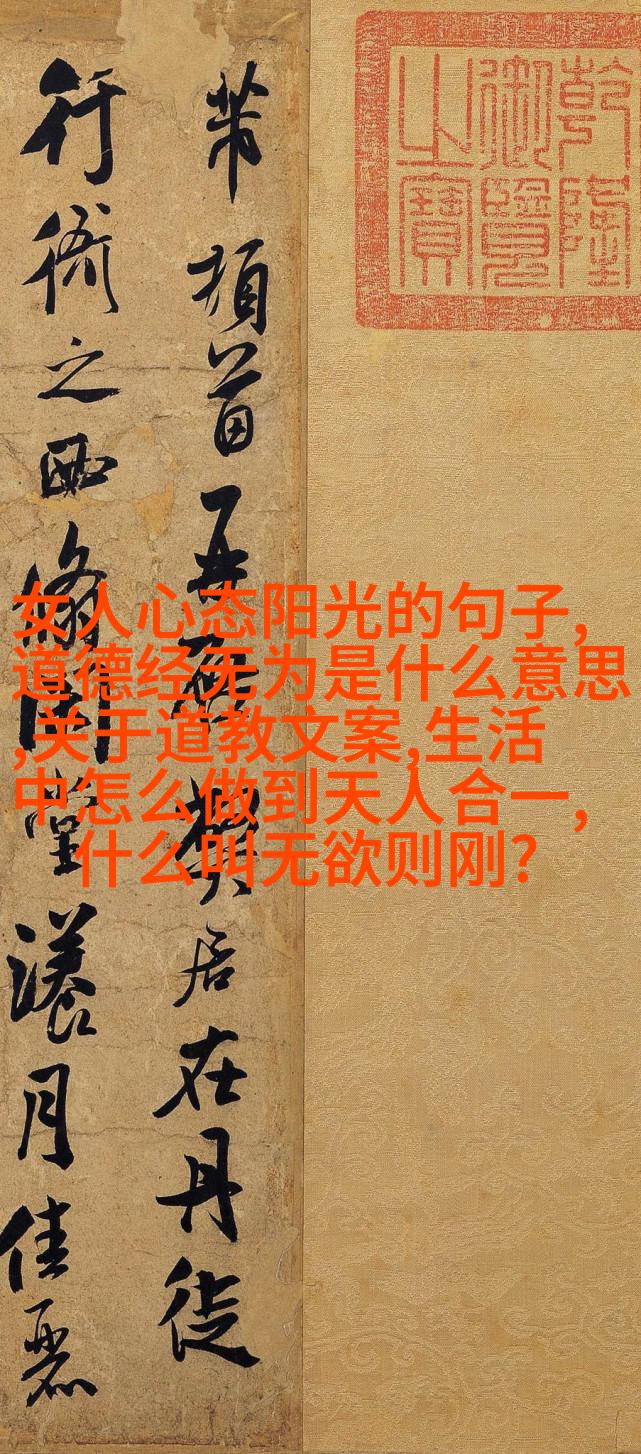 乾隆
御覽
之寶
芾頓首再啓弊居在丹徒
行衙之西翛閑堂漾月佳麗
女人心态阳光的句子,
道德经无为是什么意思
,关于道教文案,生活
中怎么做到天人合一,
什么叫无欲则刚?